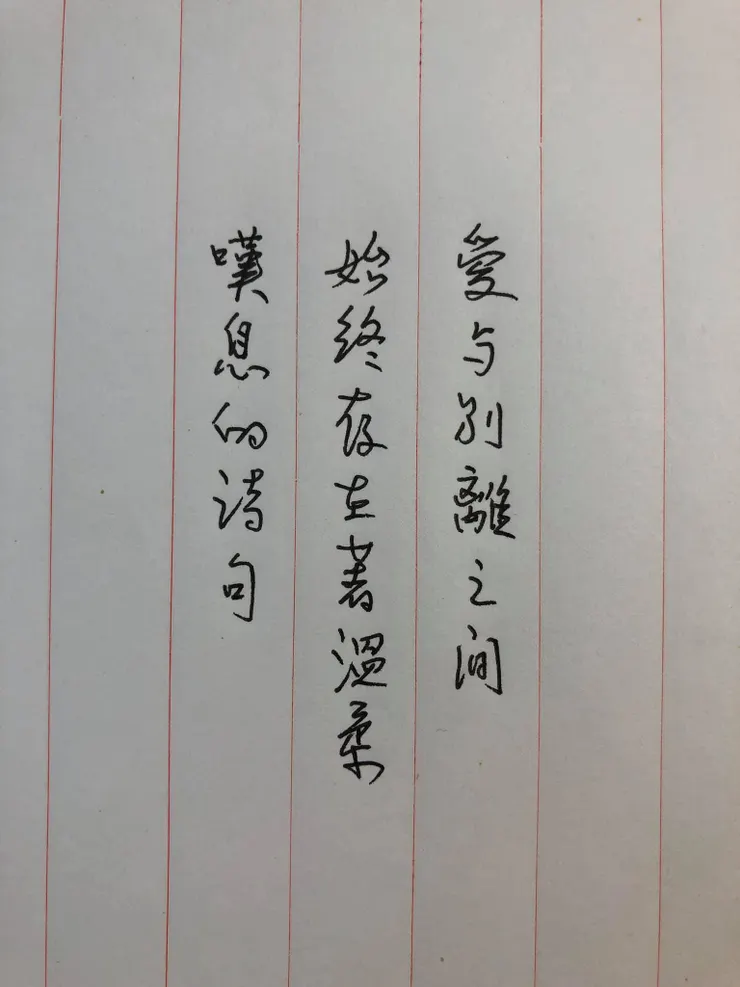 爱与别離之间
始终存在著溫柔
嘆息的诗句